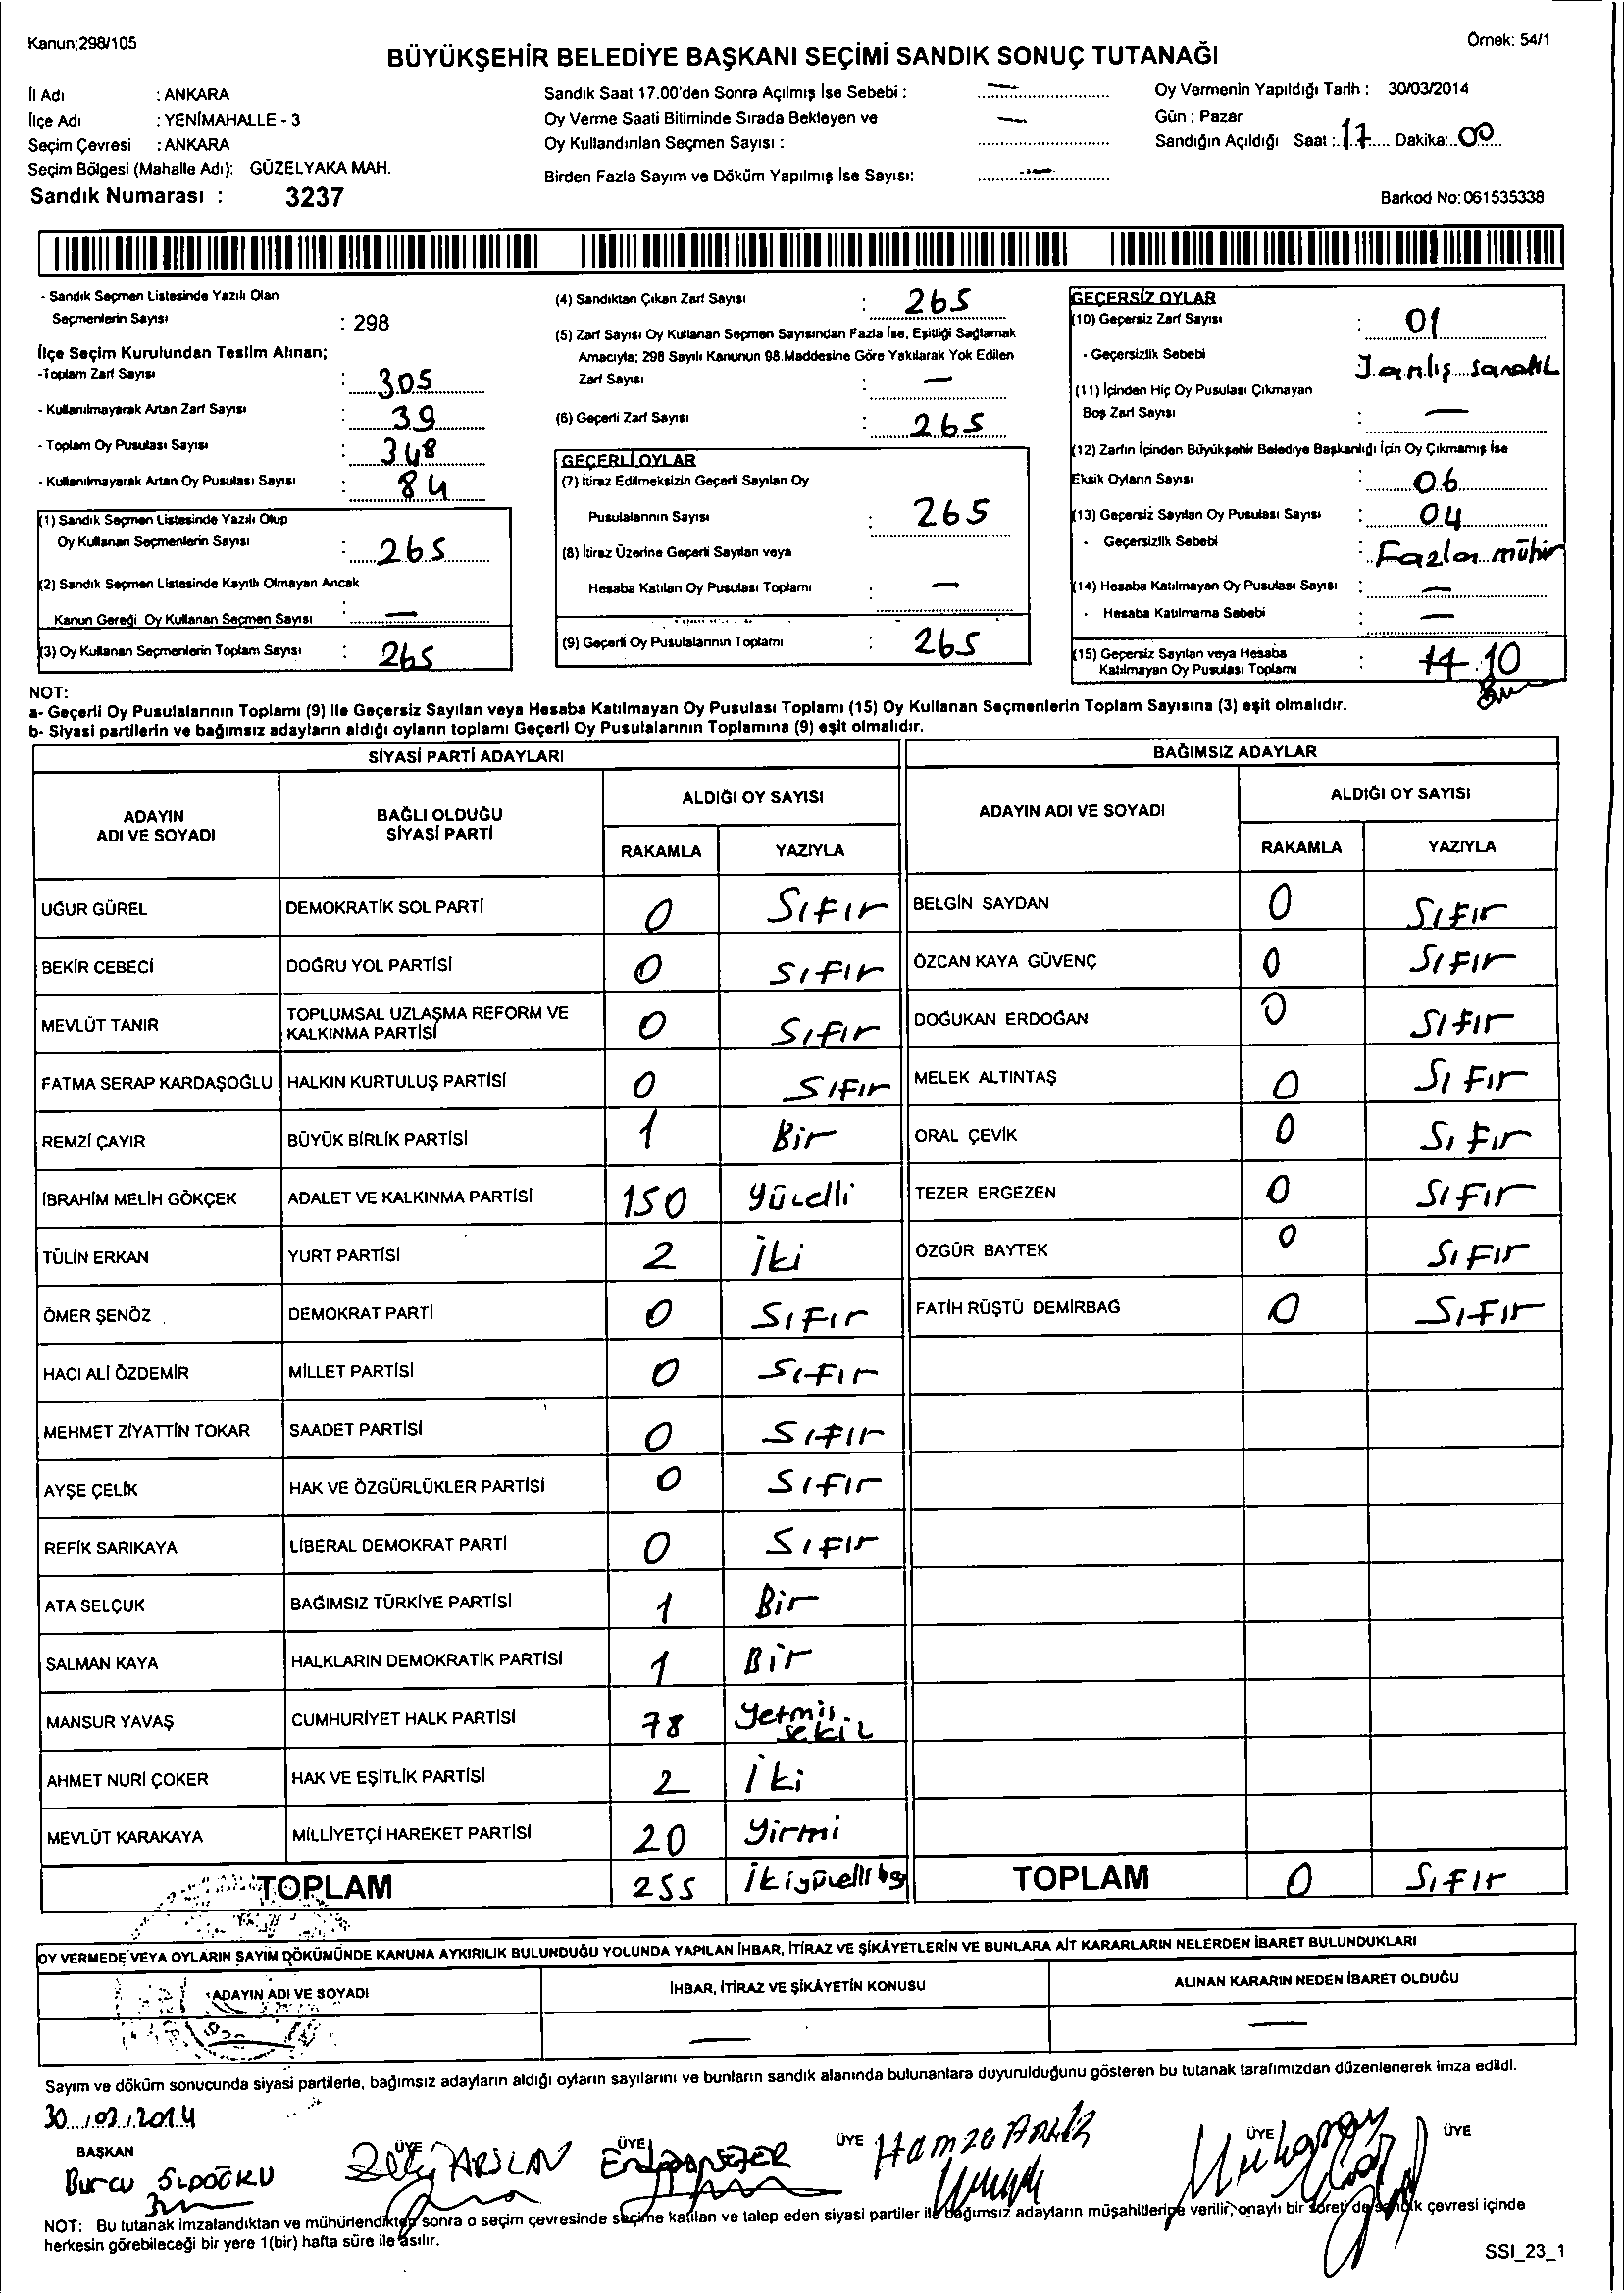 Kanun;298/105
Örnek: 54/1
BÜYÜKŞEHİR BELEDİYE BAŞKANI SEÇİMİ SANDIK SONUÇ TUTANAĞI
İl Adı : ANKARA
İlçe Adı : YENİMAHALLE - 3
Seçim Çevresi : ANKARA
Seçim Bölgesi (Mahalle Adı): GÜZELYAKA MAH.
Sandık Numarası : 3237
Sandık Saat 17.00'den Sonra Açılmış İse Sebebi : —
Oy Verme Saati Bitiminde Sırada Bekleyen ve —
Oy Kullandırılan Seçmen Sayısı :
Birden Fazla Sayım ve Döküm Yapılmış İse Sayısı: —
Oy Vermenin Yapıldığı Tarih : 30/03/2014
Gün : Pazar
Sandığın Açıldığı Saat : 17 Dakika: 00
Barkod No: 061535338
- Sandık Seçmen Listesinde Yazılı Olan
Seçmenlerin Sayısı : 298
İlçe Seçim Kurulundan Teslim Alınan;
-Toplam Zarf Sayısı : 305
- Kullanılmayarak Artan Zarf Sayısı : 39
- Toplam Oy Pusulası Sayısı : 348
- Kullanılmayarak Artan Oy Pusulası Sayısı : 84
(1) Sandık Seçmen Listesinde Yazılı Olup
Oy Kullanan Seçmenlerin Sayısı : 265
(2) Sandık Seçmen Listesinde Kayıtlı Olmayan Ancak
Kanun Gereği Oy Kullanan Seçmen Sayısı : —
(3) Oy Kullanan Seçmenlerin Toplam Sayısı : 265
(4) Sandıktan Çıkan Zarf Sayısı : 265
(5) Zarf Sayısı Oy Kullanan Seçmen Sayısından Fazla İse, Eşitliği Sağlamak
Amacıyla; 298 Sayılı Kanunun 98.Maddesine Göre Yakılarak Yok Edilen
Zarf Sayısı : —
(6) Geçerli Zarf Sayısı : 265
GEÇERLİ OYLAR
(7) İtiraz Edilmeksizin Geçerli Sayılan Oy
Pusulalarının Sayısı : 265
(8) İtiraz Üzerine Geçerli Sayılan veya
Hesaba Katılan Oy Pusulası Toplamı : —
(9) Geçerli Oy Pusulalarının Toplamı : 265
GEÇERSİZ OYLAR
(10) Geçersiz Zarf Sayısı : 01
- Geçersizlik Sebebi : Yanlış sandık
(11) İçinden Hiç Oy Pusulası Çıkmayan
Boş Zarf Sayısı : —
(12) Zarfın İçinden Büyükşehir Belediye Başkanlığı İçin Oy Çıkmamış İse
Eksik Oyların Sayısı : 06
(13) Geçersiz Sayılan Oy Pusulası Sayısı : 04
- Geçersizlik Sebebi : Fazla mühür
(14) Hesaba Katılmayan Oy Pusulası Sayısı : —
- Hesaba Katılmama Sebebi : —
(15) Geçersiz Sayılan veya Hesaba
Katılmayan Oy Pusulası Toplamı : 11 10
NOT:
a- Geçerli Oy Pusulalarının Toplamı (9) İle Geçersiz Sayılan veya Hesaba Katılmayan Oy Pusulası Toplamı (15) Oy Kullanan Seçmenlerin Toplam Sayısına (3) eşit olmalıdır.
b- Siyasi partilerin ve bağımsız adayların aldığı oyların toplamı Geçerli Oy Pusulalarının Toplamına (9) eşit olmalıdır.
SİYASİ PARTİ ADAYLARI
BAĞIMSIZ ADAYLAR
ADAYIN ADI VE SOYADI
BAĞLI OLDUĞU SİYASİ PARTİ
ALDIĞI OY SAYISI
RAKAMLA YAZIYLA
ADAYIN ADI VE SOYADI
ALDIĞI OY SAYISI
RAKAMLA YAZIYLA
UĞUR GÜREL DEMOKRATİK SOL PARTİ 0 Sıfır BELGİN SAYDAN 0 Sıfır
BEKİR CEBECİ DOĞRU YOL PARTİSİ 0 Sıfır ÖZCAN KAYA GÜVENÇ 0 Sıfır
MEVLÜT TANIR TOPLUMSAL UZLAŞMA REFORM VE KALKINMA PARTİSİ 0 Sıfır DOĞUKAN ERDOĞAN 0 Sıfır
FATMA SERAP KARDAŞOĞLU HALKIN KURTULUŞ PARTİSİ 0 Sıfır MELEK ALTINTAŞ 0 Sıfır
REMZİ ÇAYIR BÜYÜK BİRLİK PARTİSİ 1 Bir ORAL ÇEVİK 0 Sıfır
İBRAHİM MELİH GÖKÇEK ADALET VE KALKINMA PARTİSİ 150 yüzelli TEZER ERGEZEN 0 Sıfır
TÜLİN ERKAN YURT PARTİSİ 2 İki ÖZGÜR BAYTEK 0 Sıfır
ÖMER ŞENÖZ DEMOKRAT PARTİ 0 Sıfır FATİH RÜŞTÜ DEMİRBAĞ 0 Sıfır
HACI ALİ ÖZDEMİR MİLLET PARTİSİ 0 Sıfır
MEHMET ZİYATTİN TOKAR SAADET PARTİSİ 0 Sıfır
AYŞE ÇELİK HAK VE ÖZGÜRLÜKLER PARTİSİ 0 Sıfır
REFİK SARIKAYA LİBERAL DEMOKRAT PARTİ 0 Sıfır
ATA SELÇUK BAĞIMSIZ TÜRKİYE PARTİSİ 1 Bir
SALMAN KAYA HALKLARIN DEMOKRATİK PARTİSİ 1 Bir
MANSUR YAVAŞ CUMHURİYET HALK PARTİSİ 78 yetmiş sekiz
AHMET NURİ ÇOKER HAK VE EŞİTLİK PARTİSİ 2 İki
MEVLÜT KARAKAYA MİLLİYETÇİ HAREKET PARTİSİ 20 yirmi
TOPLAM 255 TOPLAM 0 Sıfır
OY VERMEDE VEYA OYLARIN SAYIM DÖKÜMÜNDE KANUNA AYKIRILIK BULUNDUĞU YOLUNDA YAPILAN İHBAR, İTİRAZ VE ŞİKÂYETLERİN VE BUNLARA AİT KARARLARIN NELERDEN İBARET BULUNDUKLARI
ADAYIN ADI VE SOYADI İHBAR, İTİRAZ VE ŞİKÂYETİN KONUSU ALINAN KARARIN NEDEN İBARET OLDUĞU
— — —
Sayım ve döküm sonucunda siyasi partilerle, bağımsız adayların aldığı oyların sayılarını ve bunların sandık alanında bulunanlara duyurulduğunu gösteren bu tutanak tarafımızdan düzenlenerek imza edildi.
30/03/2014
BAŞKAN ÜYE ÜYE ÜYE ÜYE ÜYE
Burcu ARSLAN Hamza
NOT: Bu tutanak imzalandıktan ve mühürlendikten sonra o seçim çevresinde seçime katılan ve talep eden siyasi partiler ile bağımsız adayların müşahitlerine verilir, onaylı bir sureti de sandık çevresi içinde
herkesin görebileceği bir yere 1(bir) hafta süre ile asılır.
SSI_23_1